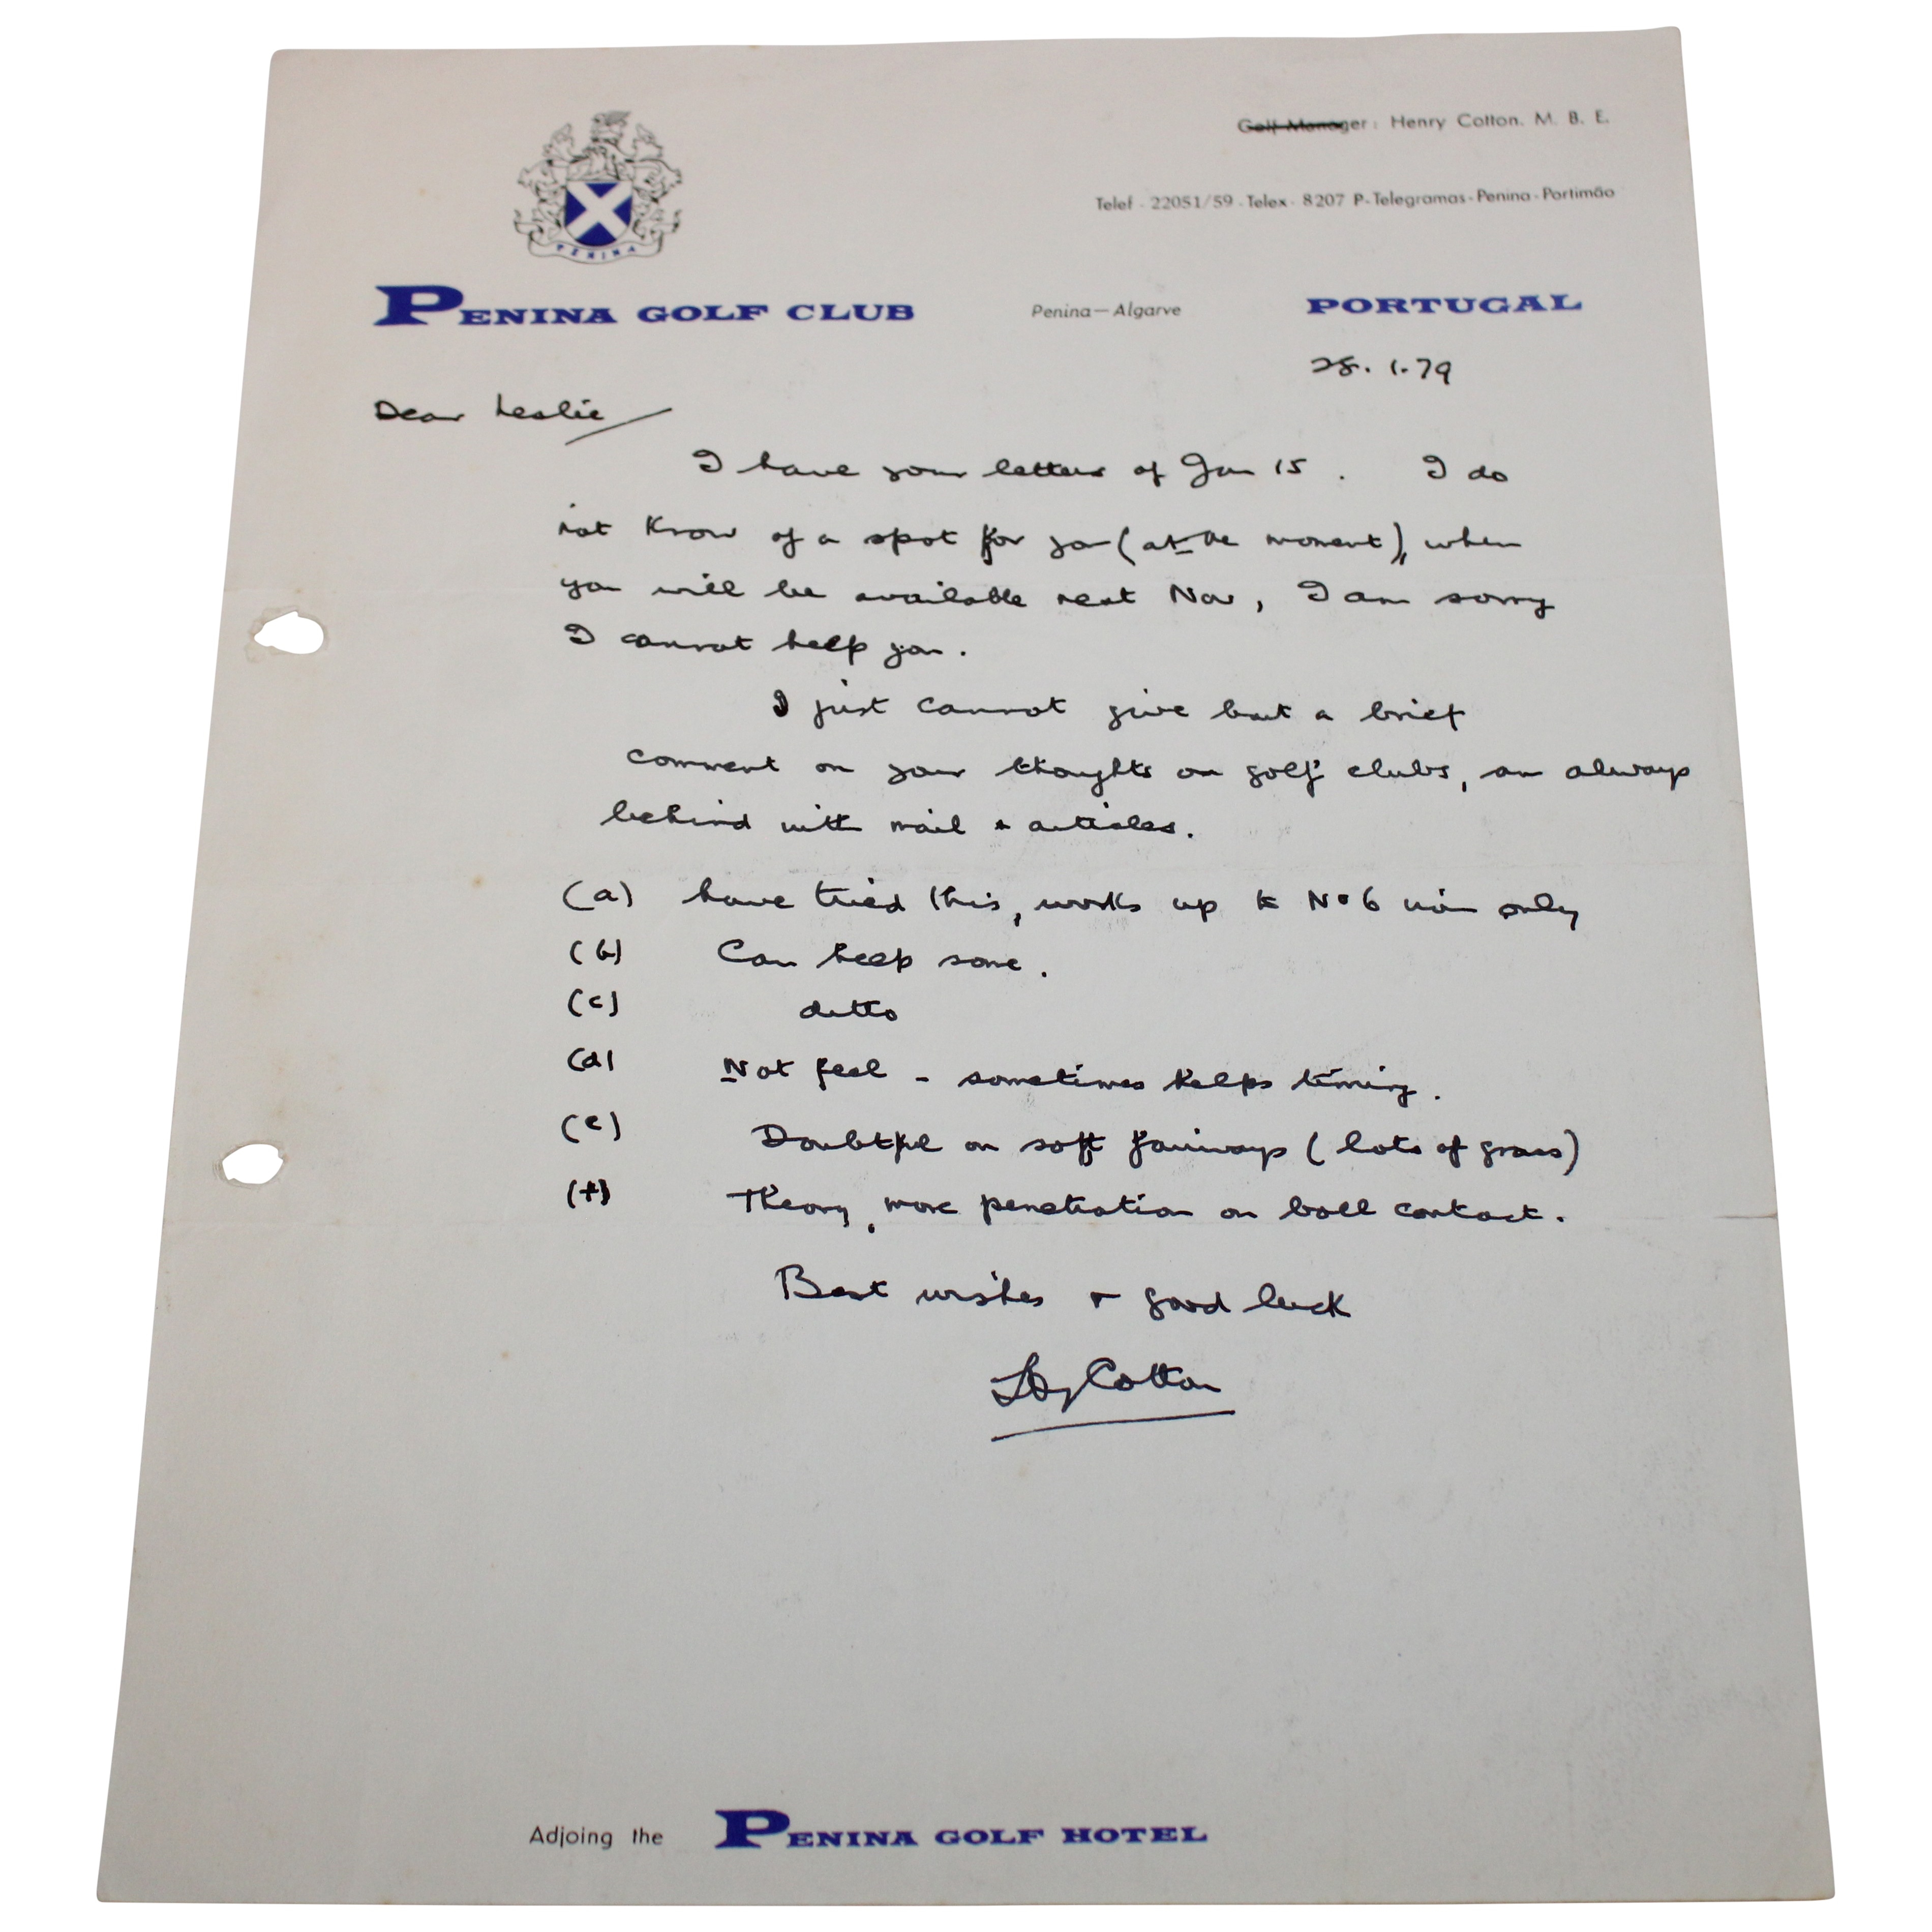 Golf Manager: Henry Cotton. M. B. E.
Telef - 22051/59 - Telex - 8207 P - Telegramas - Penina - Portimão
PENINA
PENINA GOLF CLUB Penina—Algarve PORTUGAL
28. 1. 79
Dear Leslie
I have your letters of Jan 15. I do
not know of a spot for you (at the moment), when
you will be available next Nov, I am sorry
I cannot help you.
I just cannot give but a brief
comment on your thoughts on golf clubs, am always
behind with mail & articles.
(a) have tried this, works up to No 6 iron only
(b) Can help some.
(c) ditto
(d) Not feel - sometimes helps timing.
(e) Doubtful on soft fairways (lots of grass)
(f) Theory, more penetration on ball contact.
Best wishes + good luck
Hy Cotton
Adjoing the PENINA GOLF HOTEL